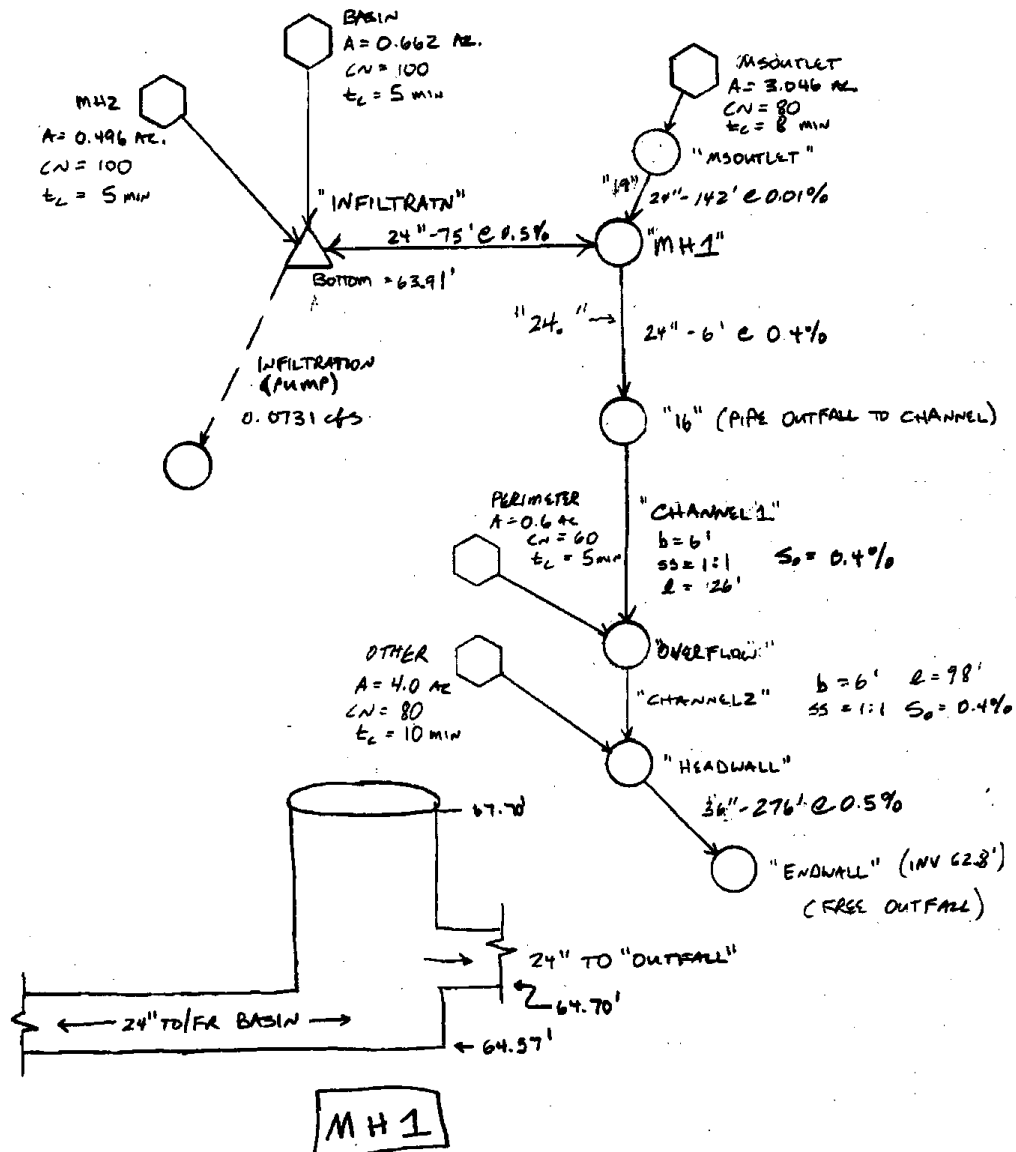 BASIN
A = 0.662 AC.
CN = 100
tc = 5 MIN
MH2
A = 0.496 AC.
CN = 100
tc = 5 MIN
MSOUTLET
A = 3.046 AC.
CN = 80
tc = 8 MIN
"MSOUTLET"
"19"
24"-142' @ 0.01%
"INFILTRATN"
24"-75' @ 0.5%
"MH1"
BOTTOM = 63.91'
"24."
24" - 6' @ 0.4%
INFILTRATION
(PUMP)
0.0731 cfs
"16" (PIPE OUTFALL TO CHANNEL)
PERIMETER
A = 0.6 AC
CN = 60
tc = 5 MIN
"CHANNEL1"
b = 6'
ss = 1:1 So = 0.4%
l = 26'
"OVERFLOW"
OTHER
A = 4.0 AC
CN = 80
tc = 10 MIN
"CHANNEL2"
b = 6' l = 98'
ss = 1:1 So = 0.4%
"HEADWALL"
36"-276' @ 0.5%
"ENDWALL" (INV 62.8')
(FREE OUTFALL)
67.70'
24" TO "OUTFALL"
64.70'
24" TO/FR BASIN
64.37'
MH1